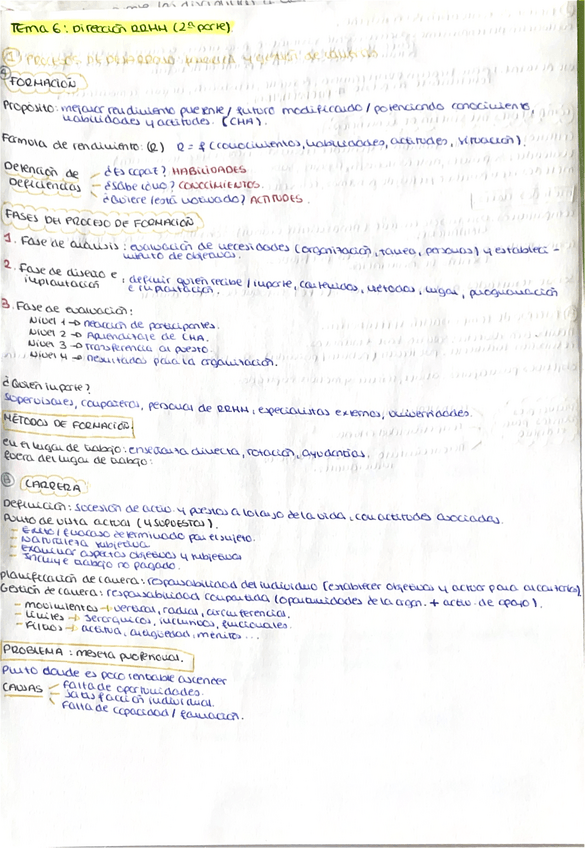 Tema 6: Dirección RRHH (2ª parte).
① PROCESOS DE DESARROLLO
FORMACIÓN
Propósito: mejorar rendimiento presente / futuro modificando / potenciando conocimiento,
habilidades y actitudes. (CHA).
Fórmula de rendimiento: (R) R = f (conocimientos, habilidades, actitudes, situación).
Detención de Deficiencias
¿Es capaz? HABILIDADES
¿Sabe cómo? CONOCIMIENTOS.
¿Quiere (está motivado? ACTITUDES.
FASES DEL PROCESO DE FORMACIÓN
1. Fase de análisis: evaluación de necesidades (organización, tarea, personas) y estableci-
miento de objetivos.
2. Fase de diseño e implantación: definir quién recibe / imparte, contenidos, métodos, lugar, programación
e implantación.
3. Fase de evaluación:
Nivel 1 → reacción de participantes.
Nivel 2 → Aprendizaje de CHA.
Nivel 3 → Transferencia al puesto.
Nivel 4 → resultados para la organización.
¿Quién imparte?
Supervisores, compañeros, personal de RRHH, especialistas externos, universidades.
MÉTODOS DE FORMACIÓN
En el lugar de trabajo: enseñanza directa, rotación, ayudantías.
fuera del lugar de trabajo:
CARRERA
Definición: sucesión de activ. y puestos a lo largo de la vida, con actitudes asociadas.
Punto de vista actual (4 SUPUESTOS).
- Éxito / fracaso determinado por el sujeto.
- Naturaleza subjetiva
- Examinar aspectos objetivos y subjetivos
- Incluye trabajo no pagado.
Planificación de carrera: responsabilidad del individuo (establecer objetivos y actuar para alcanzarlos)
Gestión de carrera: responsabilidad compartida (oportunidades de la organ. + activ. de apoyo).
- movimientos → vertical, radial, circunferencias.
- Límites → jerárquicos, funcionales.
- Filtros → actitud, antigüedad, méritos...
PROBLEMA: meseta profesional.
Punto donde es poco rentable ascender
CAUSAS
Falta de oportunidades.
Satisfacción individual.
Falta de capacidad / formación.